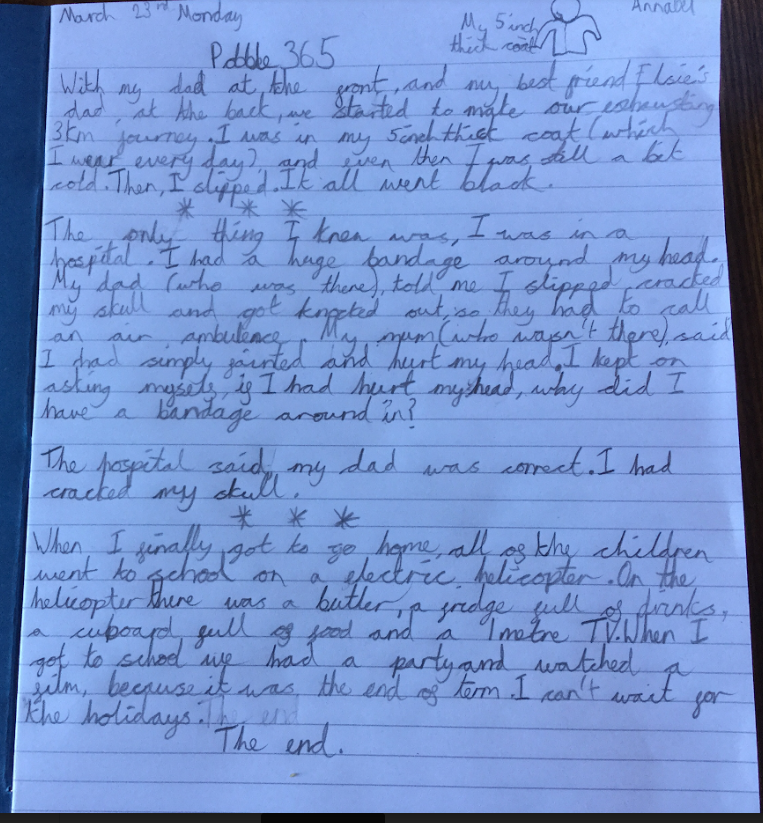 March 23rd Monday
Annabel
My 5inch
thick coat
Pobble 365
With my dad at the front, and my best friend Elsie's
dad, at the back, we started to make our exhausting
3km journey. I was in my 5inch thick coat (which
I wear every day), and even then I was still a bit
cold. Then, I slipped. It all went black.
* * *
The only thing I knew was, I was in a
hospital. I had a huge bandage around my head.
My dad (who was there), told me I slipped, cracked
my skull and got knocked out, so they had to call
an air ambulence. My mum (who wasn't there), said
I had simply fainted and hurt my head. I kept on
asking myself, if I had hurt my head, why did I
have a bandage around in?
The hospital said, my dad was correct. I had
cracked my skull.
* * *
When I finally got to go home, all of the children
went to school on a electric helicopter. On the
helicopter there was a butler, a fridge full of drinks,
a cuboard full of food and a 1metre TV. When I
got to school we had a party and watched a
film, because it was the end of term. I can't wait for
the holidays. The end
The end.